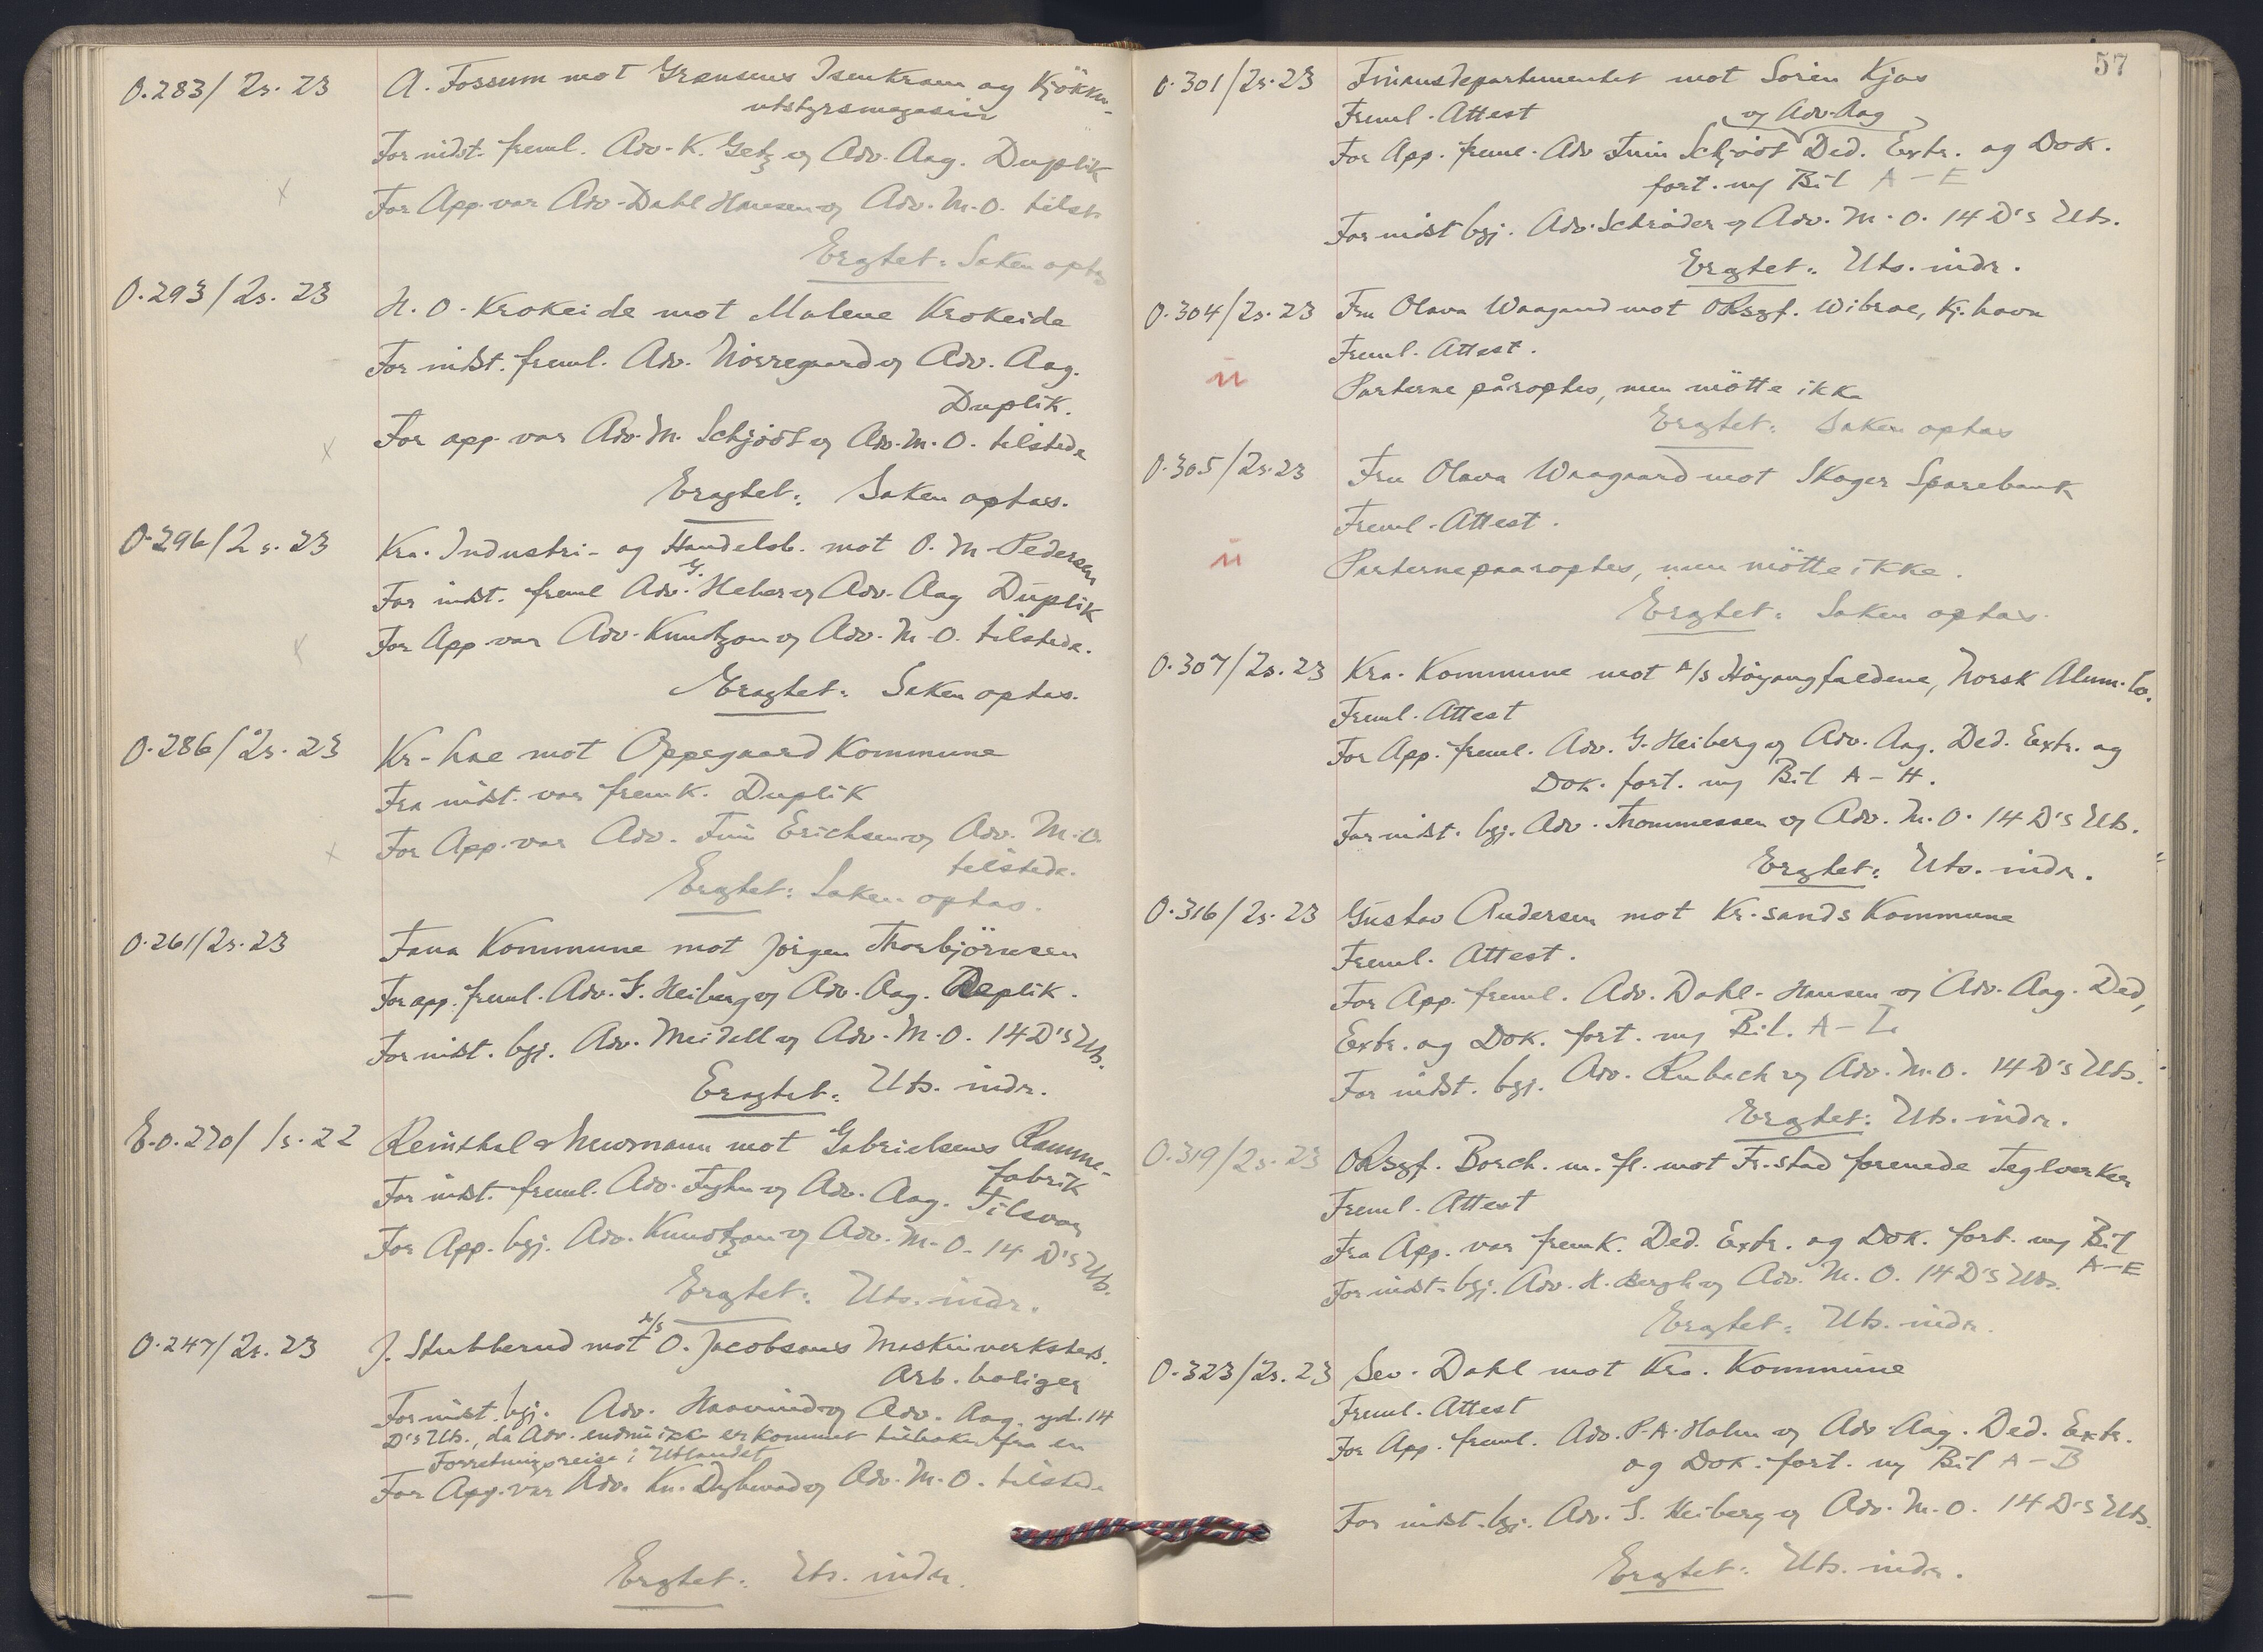 O.283/2s.23 A. Fossum mot Grænsens Isenkram og Kjökken-
utstyrsmagasin
For indst. freml. Adv. K. Getz og Adv. Aag. Duplik
x For App. var Adv. Dahl Hansen og Adv. M.O. tilst.
Eragtet: Saken optas
O.293/2s.23 H.O. Krokeide mot Malene Krokeide
For indst. freml. Adv. Nörregaard og Adv. Aag.
Duplik.
x For app. var Adv. M. Schjödt og Adv. M.O. tilstede
Eragtet: Saken optas.
O.296/2s.23 Kra. Industri- og Handelsb. mot O.M. Pedersen
For indst. freml Adv. G. Heber og Adv. Aag Duplik
x For App var Adv. Knudtzon og Adv. M.O. tilstede.
Eragtet: Saken optas.
O.286/2s.23 Kr. hae mot Oppegaard Kommune
Fra indst. var fremk. Duplik
x For App. var Adv. Finn Erichsen og Adv. M.O.
tilstede.
Eragtet: Saken optas.
O.261/2s.23 Fana Kommune mot Jörgen Thorbjörnsen
For app. freml. Adv. S. Heiberg og Adv. Aag. Replik.
For indst. bgj. Adv. Meidell og Adv. M.O. 14 D's Uts.
Eragtet: Uts. indr.
E.O.270/1s.22 Reinthal & Newmann mot Gabrielsens Ramme-
fabrik
For indst. freml. Adv. Fyhn og Adv. Aag. Tilsvar
For App. bgj. Adv. Knudtzon og Adv. M.O. 14 D's Uts.
Eragtet: Uts. indr.
O.247/2s.23 J. Stubberud mot A/S O. Jacobsens Maskinverksteds.
Arb. boliger
For indst. bgj. Adv. Haavind og Adv. Aag. yd. 14
D's Uts., da Adv. endnu ikke er kommet tilbake fra en
Forretningsreise i Utlandet
For App. var Adv. Kn. Dybwad og Adv. M.O. tilstede
Eragtet: Uts. indr.
57
O.301/2s.23 Finansdepartementet mot Sören Kjær
Freml. Attest
og Adv. Aag
For App. freml. Adv Finn Schjödt Ded. Extr. og Dok.
fort. og Bil A-E
For indst bgj. Adv. Schröder og Adv. M.O. 14 D's Uts.
Eragtet: Uts. indr.
O.304/2s.23 Fru Olava Waagaard mot ORsgf. Wibroe, Kj.havn
Freml. Attest.
ü Parterne påroptes, men mötte ikke
Eragtet: Saken optas
O.305/2s.23 Fru Olava Waagaard mot Skoger Sparebank
Freml. Attest.
ü Parterne paaroptes, men mötte ikke.
Eragtet: Saken optas.
O.307/2s.23 Kra. Kommune mot A/S Höyangfaldene, Norsk Alum. Co.
Freml. Attest
For App. freml. Adv. G. Heiberg og Adv. Aag. Ded. Extr. og
Dok. fort. og Bil A-H.
For indst. bgj. Adv. Thommessen og Adv. M.O. 14 D's Uts.
Eragtet: Uts. indr.
O.316/2s.23 Gustav Andersen mot Kr.sands Kommune
Freml. Attest.
For App. freml. Adv. Dahl-Hansen og Adv. Aag. Ded,
Extr. og Dok. fort. og Bil. A-L
For indst. bgj. Adv. Rubach og Adv. M.O. 14 D's Uts.
Eragtet: Uts. indr.
O.319/2s.23 ORsgf. Borch. m. fl. mot Fr.stad forenede Teglverker
Freml. Attest
Fra App. var fremk. Ded. Extr. og Dok. fort. og Bil
A-E
For indst. bgj. Adv. H. Bergh og Adv. M.O. 14 D's Uts.
Eragtet: Uts. indr.
O.323/2s.23 Sev. Dahl mot Kra. Kommune
Freml. Attest
For App. freml. Adv. P.A. Holm og Adv. Aag. Ded. Extr.
og Dok. fort. og Bil A-B
For indst. bgj. Adv. S. Heiberg og Adv. M.O. 14 D's Uts.
Eragtet: Uts. indr.